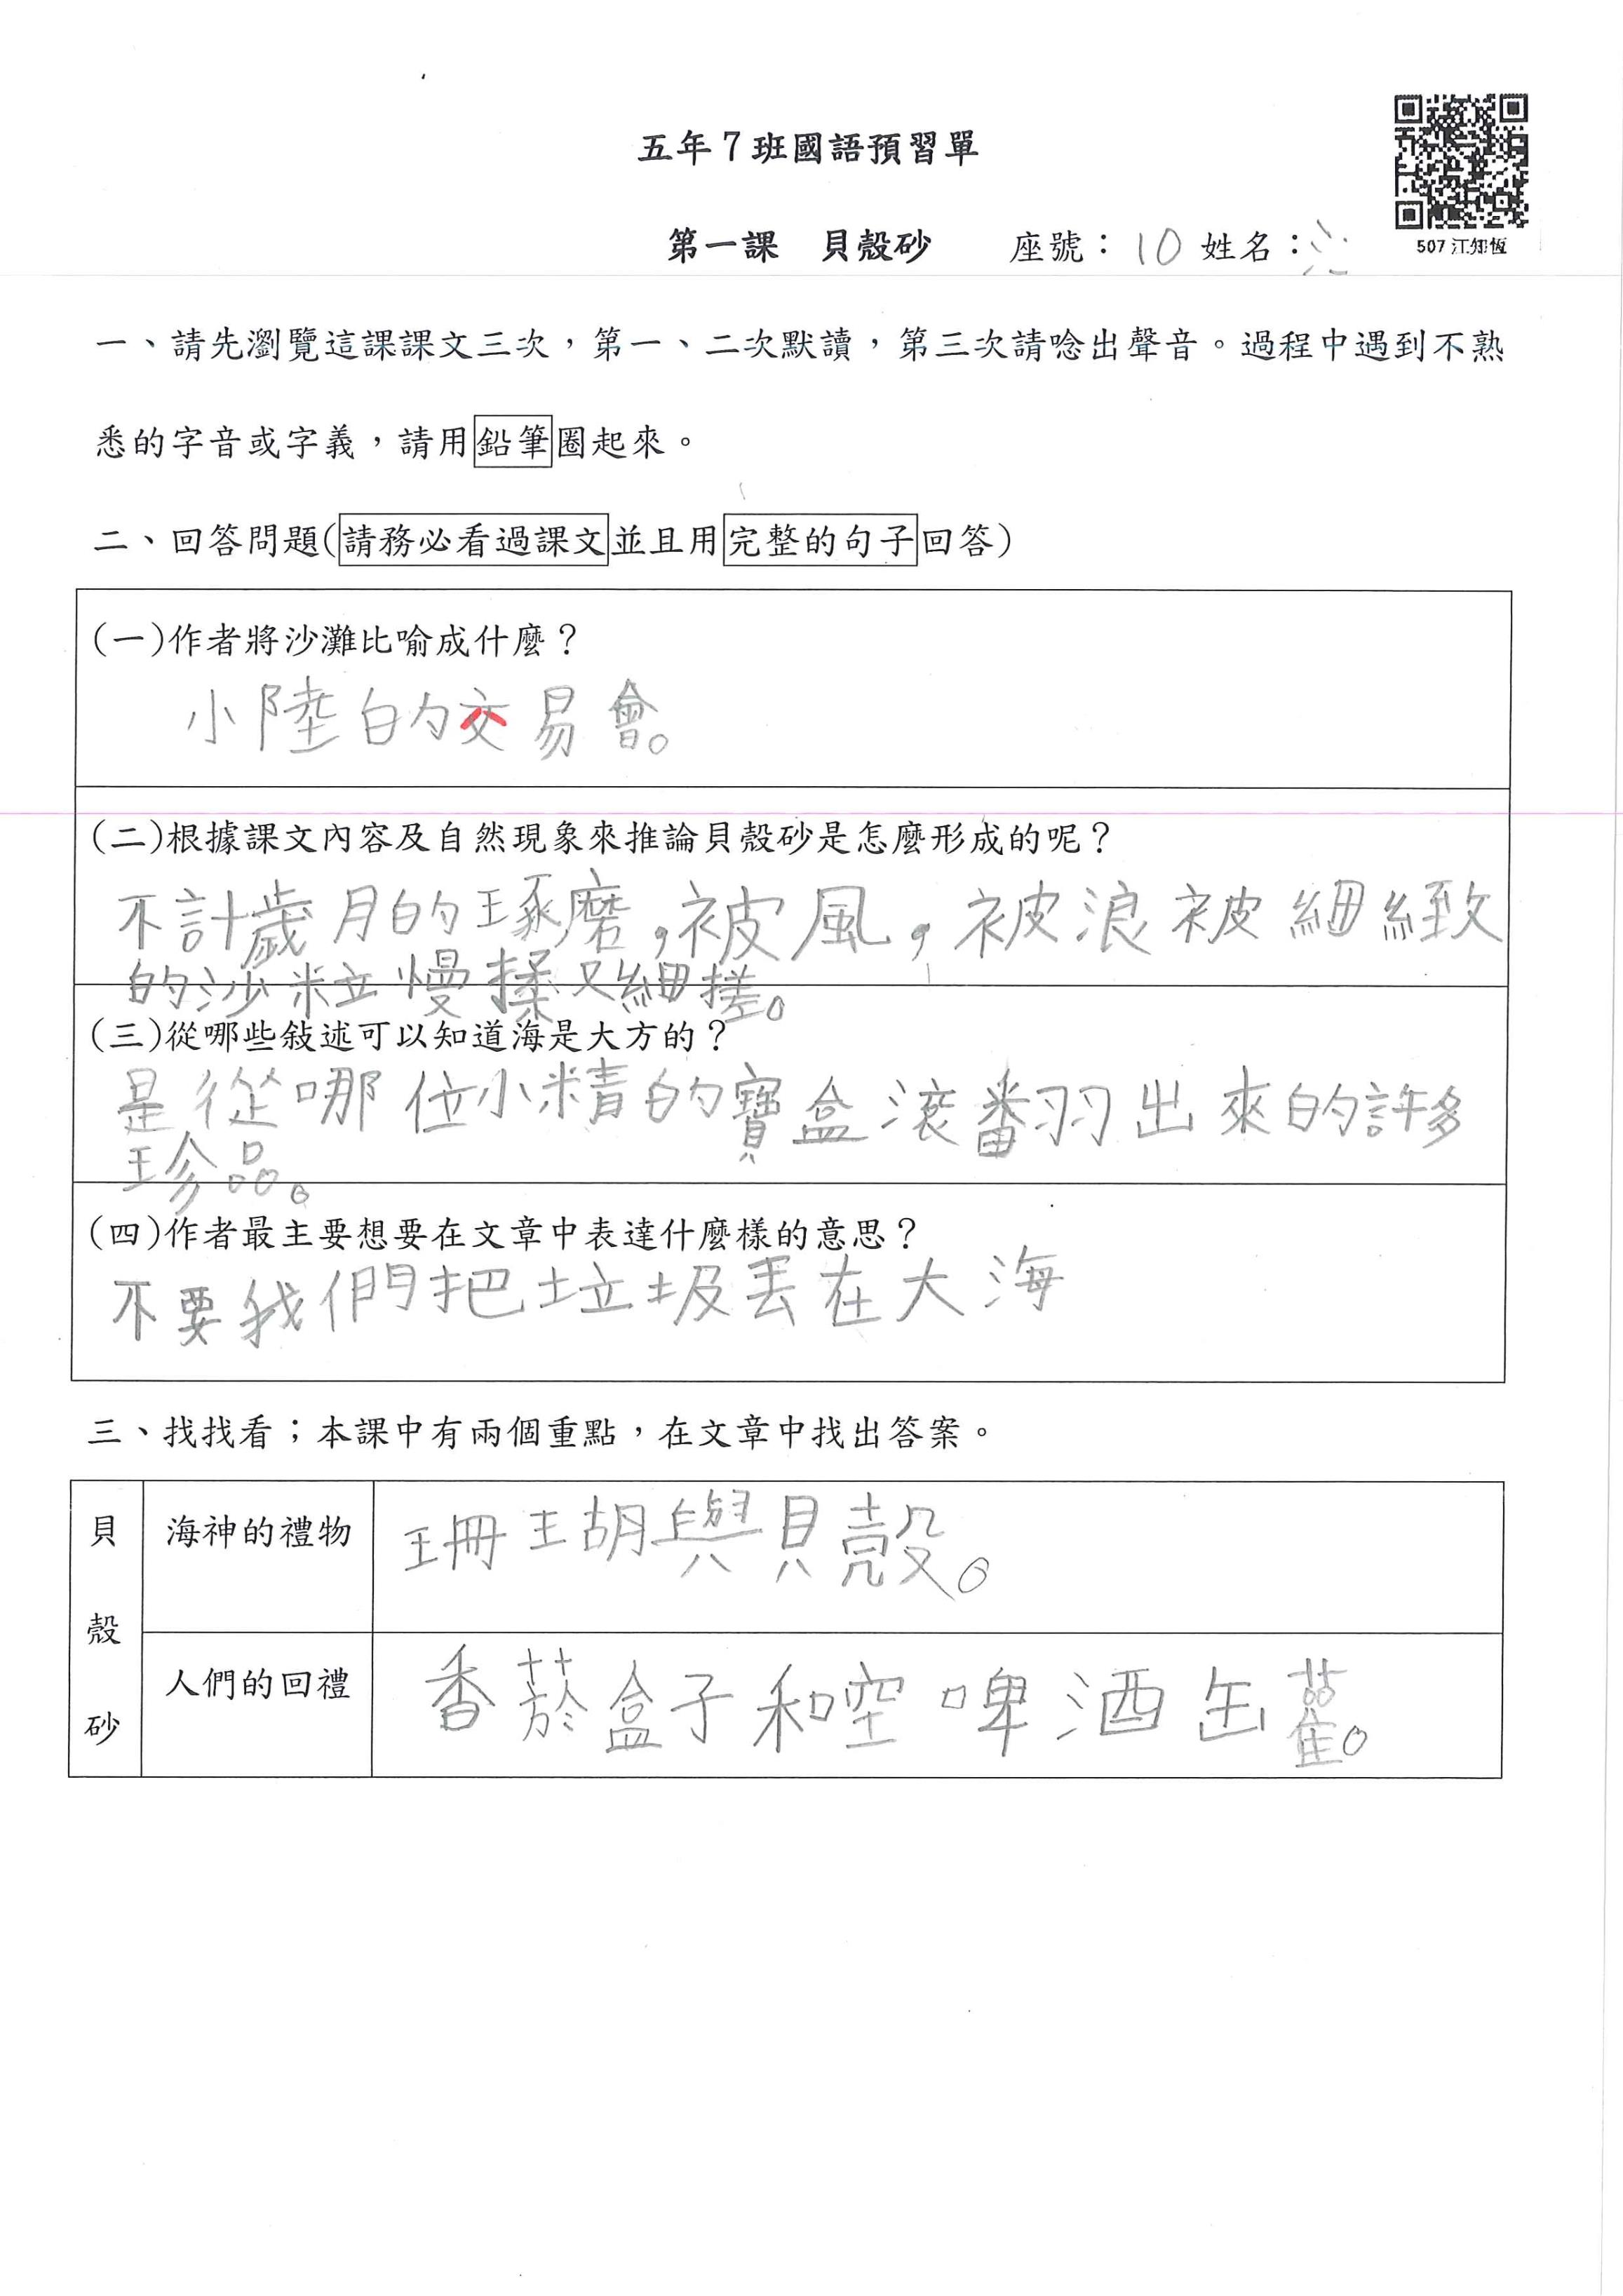 五年7班國語預習單
第一課　貝殼砂　座號：10 姓名：江
507 江知恆
一、請先瀏覽這課課文三次，第一、二次默讀，第三次請唸出聲音。過程中遇到不熟
悉的字音或字義，請用鉛筆圈起來。
二、回答問題(請務必看過課文並且用完整的句子回答)
(一)作者將沙灘比喻成什麼？
小陸的交易會。
(二)根據課文內容及自然現象來推論貝殼砂是怎麼形成的呢？
不計歲月的琢磨，被風，被浪被細緻
的沙粒慢揉又細搓。
(三)從哪些敍述可以知道海是大方的？
是從哪位小精的寶盒滾翻出來的許多
珍品。
(四)作者最主要想要在文章中表達什麼樣的意思？
不要我們把垃圾丟在大海
三、找找看；本課中有兩個重點，在文章中找出答案。
貝殼砂
海神的禮物
珊瑚與貝殼。
人們的回禮
香菸盒子和空啤酒缶